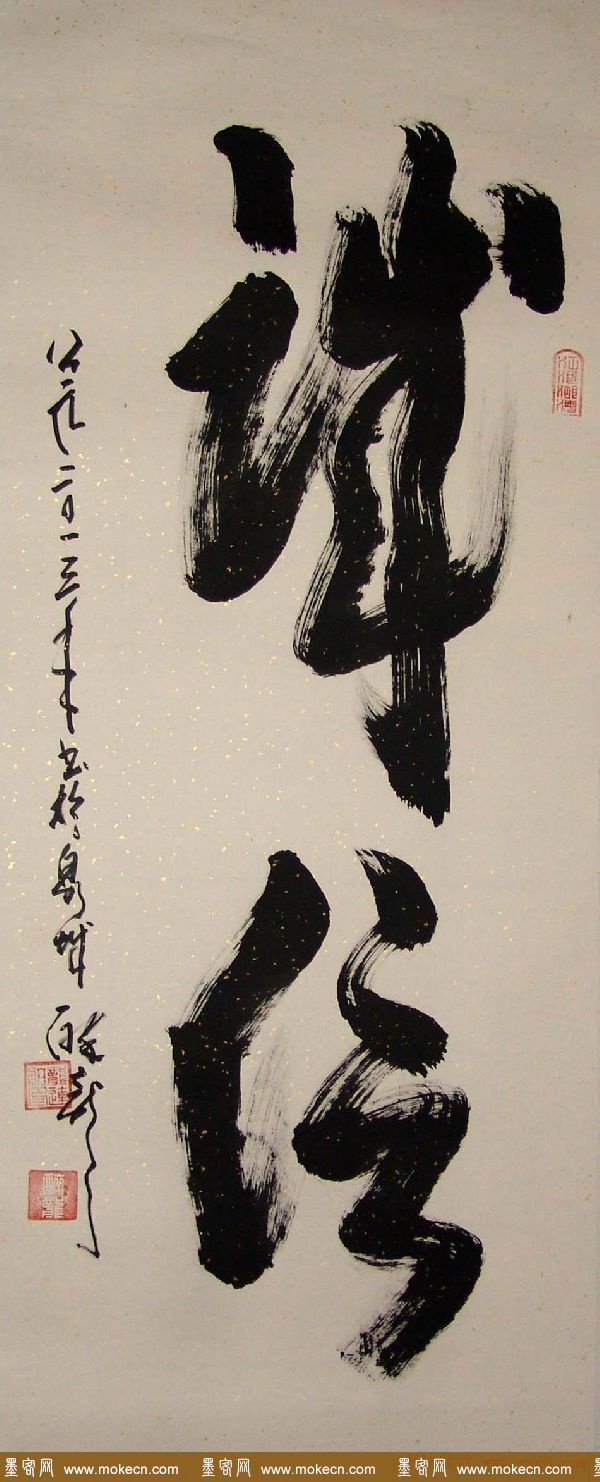 诚信
公元二〇一三年 书於泉城 醉龙
墨客网 www.mokecn.com 墨客网 www.mokecn.com 墨客网 www.mokecn.com 墨